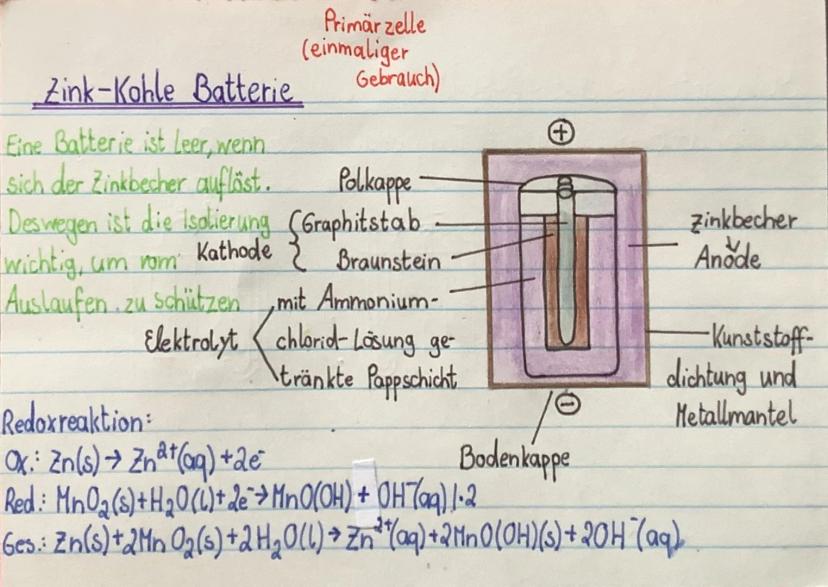 Primärzelle
(einmaliger
Gebrauch)
Zink-Kohle Batterie
Eine Batterie ist Leer, wenn
sich der Zinkbecher auflöst.
Deswegen ist die Isolierung
wichtig, um vom
Auslaufen zu schützen
+
Polkappe
Graphitstab
Kathode
Braunstein
Elektrolyt
mit Ammonium-
chlorid-Lösung ge-
tränkte Pappschicht
Zinkbecher
Anode
Kunststoff-
dichtung und
Metallmantel
−
Bodenkappe
Redoxreaktion:
Ox.: Zn(s) → Zn²⁺(aq) + 2e⁻
Red.: MnO₂(s) + H₂O(l) + 2e⁻ → MnO(OH) + OH⁻(aq) |·2
Ges.: Zn(s) + 2MnO₂(s) + 2H₂O(l) → Zn²⁺(aq) + 2MnO(OH)(s) + 2OH⁻(aq)